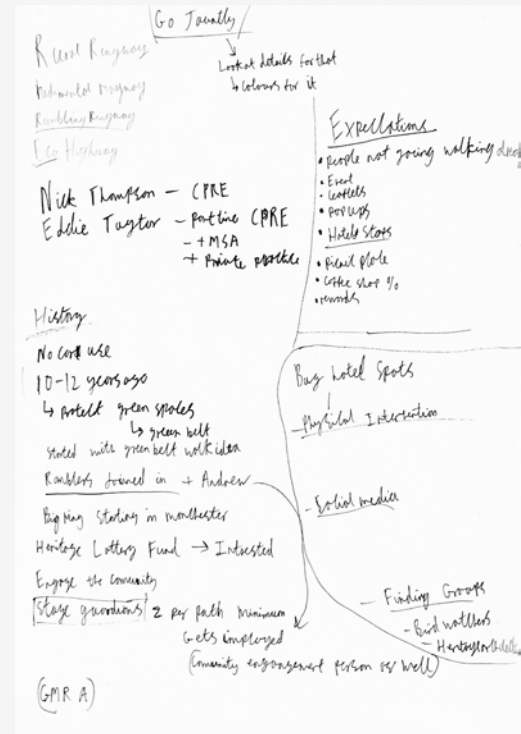 Go Jauntly
Look at details for that
↳ Colours for it
Rural Ringway
Rambling Ringway
Eco Highway
Nick Thompson - CPRE
Eddie Taylor - part time CPRE
- + MSA
+ Private practice
Expectations
• People not going walking
• Event
• Leaflets
• POP UPS
• Hotels Stops
• Picnic place
• Coffee shop %
• rewards
History
10-12 years ago
↳ Protect green spaces
↳ green belt
Started with green belt walk idea
Ramblers Joined in + Andrew
Big Ring Starting in manchester
Heritage Lottery Fund → Intrested
Engage the community
Stage guardians 2 per path minimum
Gets employed
(Comunity engangement person as well)
(GMRA)
Bug hotel Spots
- Physical Intervention
- Social media
- Finding Groups
- Bird watchers